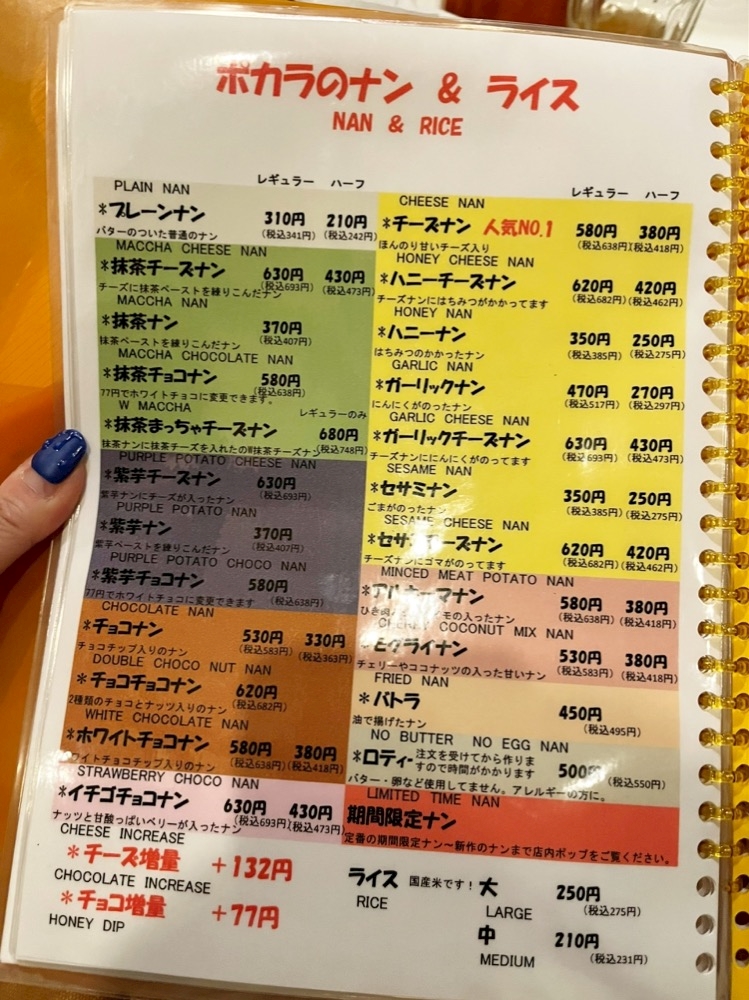 ポカラのナン & ライス
NAN & RICE
レギュラー ハーフ
PLAIN NAN
*プレーンナン 310円 210円
バターのついた普通のナン (税込341円) (税込242円)
MACCHA CHEESE NAN
*抹茶チーズナン 630円 430円
チーズに抹茶ペーストを練りこんだナン (税込693円) (税込473円)
MACCHA NAN
*抹茶ナン 370円
抹茶ペーストを練りこんだナン (税込407円)
MACCHA CHOCOLATE NAN
*抹茶チョコナン 580円
77円でホワイトチョコに変更できます。 (税込638円)
W MACCHA レギュラーのみ
*抹茶まっちゃチーズナン 680円
抹茶ナンに抹茶チーズを入れたのW抹茶チーズナン (税込748円)
PURPLE POTATO CHEESE NAN
*紫芋チーズナン 630円
紫芋ナンにチーズが入ったナン (税込693円)
PURPLE POTATO NAN
*紫芋ナン 370円
紫芋ペーストを練りこんだナン (税込407円)
PURPLE POTATO CHOCO NAN
*紫芋チョコナン 580円
77円でホワイトチョコに変更できます (税込638円)
CHOCOLATE NAN
*チョコナン 530円 330円
チョコチップ入りのナン (税込583円) (税込363円)
DOUBLE CHOCO NUT NAN
*チョコチョコナン 620円
2種類のチョコとナッツ入りのナン (税込682円)
WHITE CHOCOLATE NAN
*ホワイトチョコナン 580円 380円
ワイトチョコチップ入りのナン (税込638円) (税込418円)
STRAWBERRY CHOCO NAN
*イチゴチョコナン 630円 430円
ナッツと甘酸っぱいベリーが入ったナン (税込693円) (税込473円)
CHEESE INCREASE
*チーズ増量 +132円
CHOCOLATE INCREASE
*チョコ増量 +77円
HONEY DIP
レギュラー ハーフ
CHEESE NAN
*チーズナン 人気NO.1 580円 380円
ほんのり甘いチーズ入り (税込638円) (税込418円)
HONEY CHEESE NAN
*ハニーチーズナン 620円 420円
チーズナンにはちみつがかかってます (税込682円) (税込462円)
HONEY NAN
*ハニーナン 350円 250円
はちみつのかかったナン (税込385円) (税込275円)
GARLIC NAN
*ガーリックナン 470円 270円
にんにくがのったナン (税込517円) (税込297円)
GARLIC CHEESE NAN
*ガーリックチーズナン 630円 430円
チーズナンににんにくがのってます (税込693円) (税込473円)
SESAME NAN
*セサミナン 350円 250円
ごまがのったナン (税込385円) (税込275円)
SESAME CHEESE NAN
*セサミチーズナン 620円 420円
チーズナンにゴマがのってます (税込682円) (税込462円)
MINCED MEAT POTATO NAN
ナン 580円 380円
の入ったナン (税込638円) (税込418円)
CHERRY COCONUT MIX NAN
グライナン 530円 380円
チェリーやココナッツの入った甘いナン (税込583円) (税込418円)
FRIED NAN
*バトラ 450円
油で揚げたナン (税込495円)
NO BUTTER NO EGG NAN
*ロティ- 注文を受けてから作りますので時間がかかります 500円 (税込550円)
バター・卵など使用してません。アレルギーの方に。
LIMITED TIME NAN
期間限定ナン
定番の期間限定ナン～新作のナンまで店内ポップをご覧ください。
ライス 国産米です! 大 250円
RICE LARGE (税込275円)
中 210円
MEDIUM (税込231円)